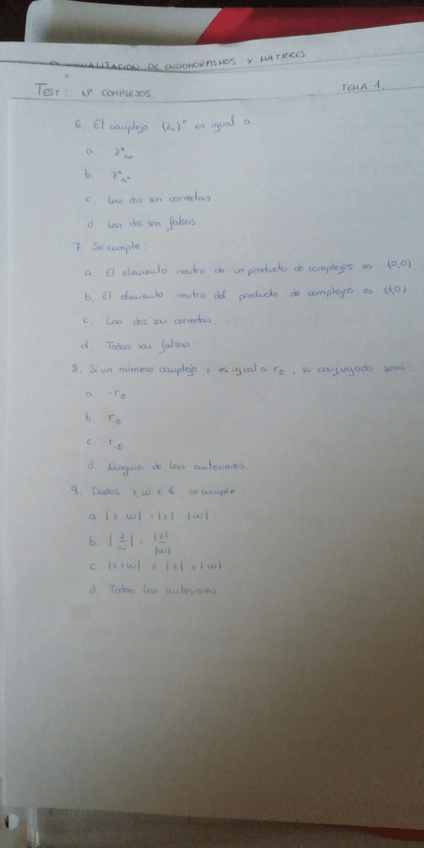 DIAGONALIZACION DE ENDOMORFISMOS Y MATRICES
TEST: Nº COMPLEJOS. TEMA 1.
6. El complejo (z_α)^n es igual a
a. z^n_nα
b. z^n_α^n
c. Las dos son correctas
d. Las dos son falsas.
7. Se cumple
a. El elemento neutro de un producto de complejos es (0,0)
b. El elemento neutro del producto de complejos es (1,0)
c. Las dos son correctas
d. Todas son falsas.
8. Si un número complejo z es igual a r_θ, su conjugado será:
a. -r_θ
b. r_-θ
c. -r_-θ
d. Ninguna de las anteriores.
9. Dados z, w ∈ ℂ, se cumple
a. |z·w| = |z|·|w|
b. |z/w| = |z|/|w|
c. |z+w| ≤ |z|+|w|
d. Todas las anteriores